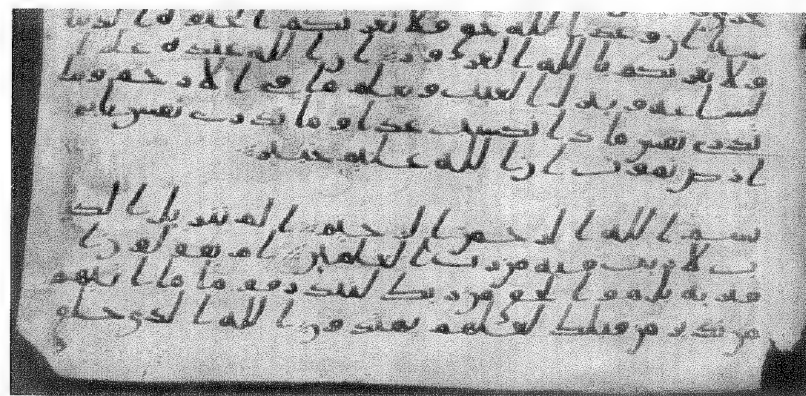 شيا ان وعد الله حق فلا تغرنكم الحيوه الدنيا
ولا يغرنكم بالله الغرور ان الله عنده علم ا
لساعه وينزل الغيث ويعلم ما في الارحم وما
تدري نفس ماذا تكسب غدا وما تدري نفس باي
ارض تموت ان الله عليم خبير
بسم الله الرحمن الرحيم الم تنزيل الكت
ب لا ريب فيه من رب العلمين ام يقولون ا
فتريه بل هو الحق من ربك لتنذر قوما ما اتيهم
من نذير من قبلك لعلهم يهتدون الله الذي خلق